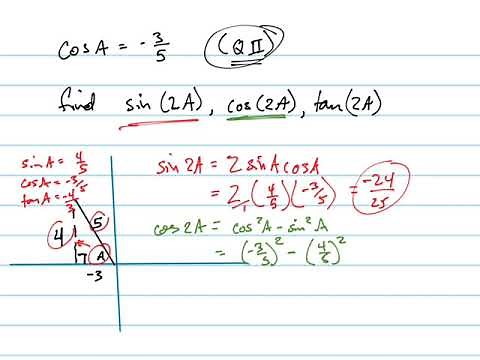 cos A = -3/5 (Q II)
find sin(2A), cos(2A), tan(2A)
sin A = 4/5
cos A = -3/5
tan A = -4/3
4
5
A
-3
sin 2A = 2 sin A cos A
= 2/1 (4/5)(-3/5) = -24/25
cos 2A = cos²A - sin²A
= (-3/5)² - (4/5)²